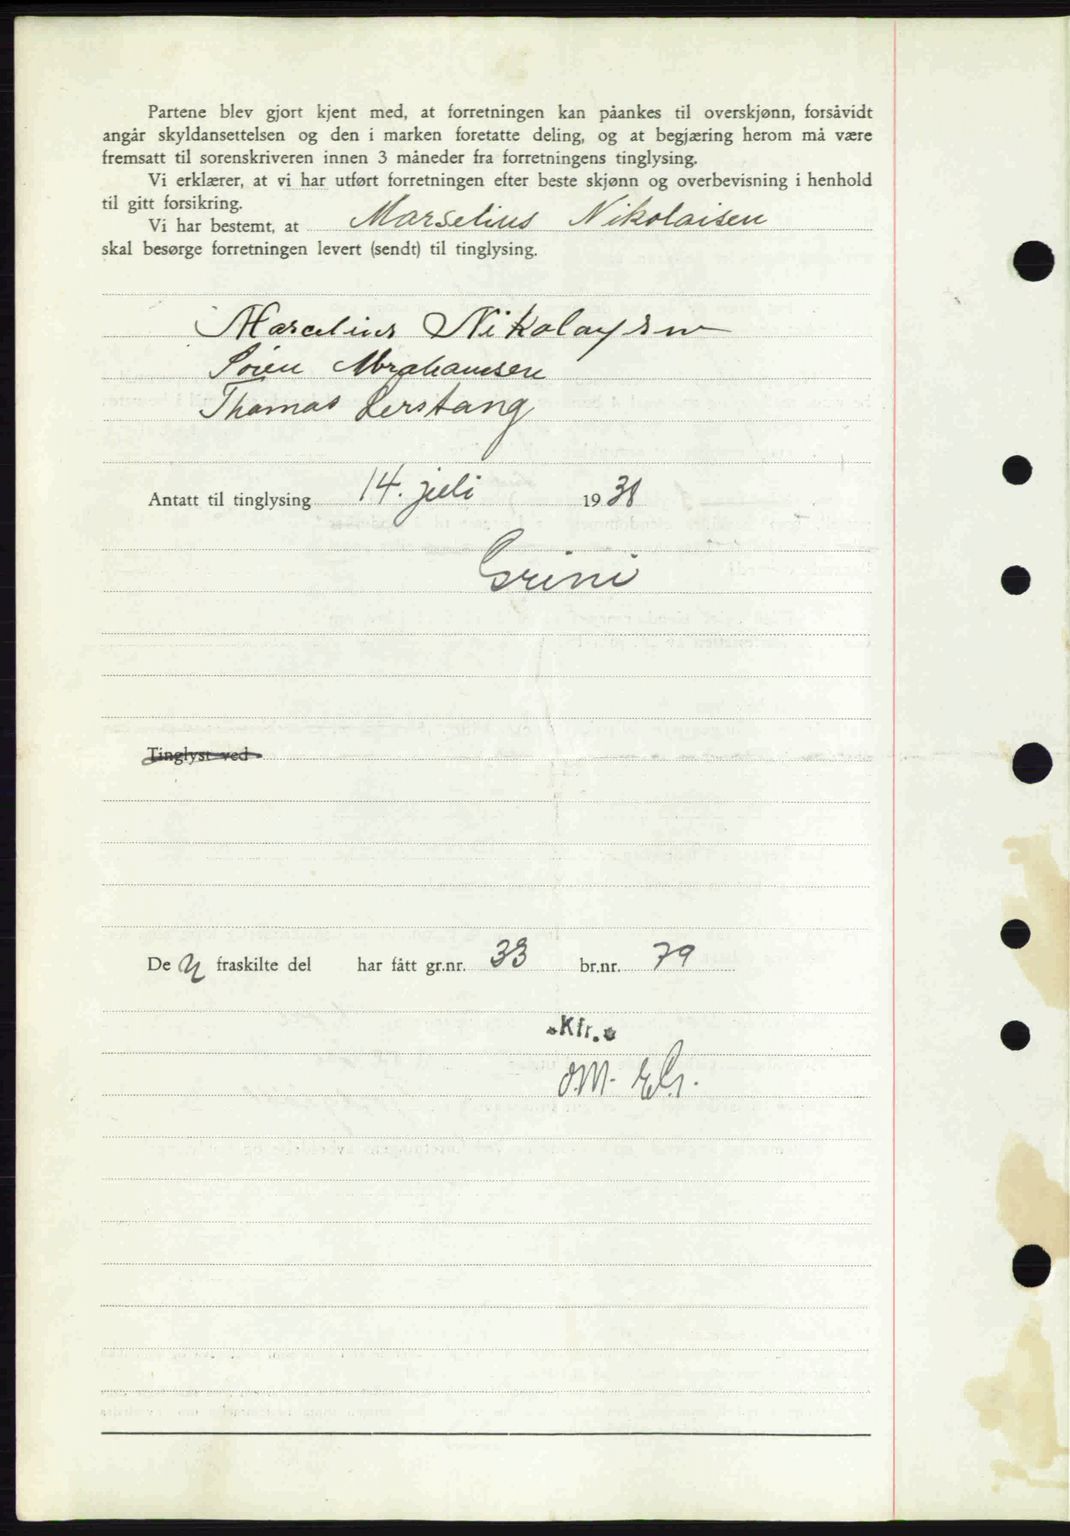 Partene blev gjort kjent med, at forretningen kan påankes til overskjønn, forsåvidt
angår skyldansettelsen og den i marken foretatte deling, og at begjæring herom må være
fremsatt til sorenskriveren innen 3 måneder fra forretningens tinglysing.
Vi erklærer, at vi har utført forretningen efter beste skjønn og overbevisning i henhold
til gitt forsikring.
Vi har bestemt, at Marselius Nikolaisen
skal besørge forretningen levert (sendt) til tinglysing.
Marcelius Nikolaysen
Søren Abrahamsen
Thomas Lerstang
Antatt til tinglysing 14. juli 1938
Grini
Tinglyst ved
De n fraskilte del har fått gr.nr. 33 br.nr. 79
Kfr.